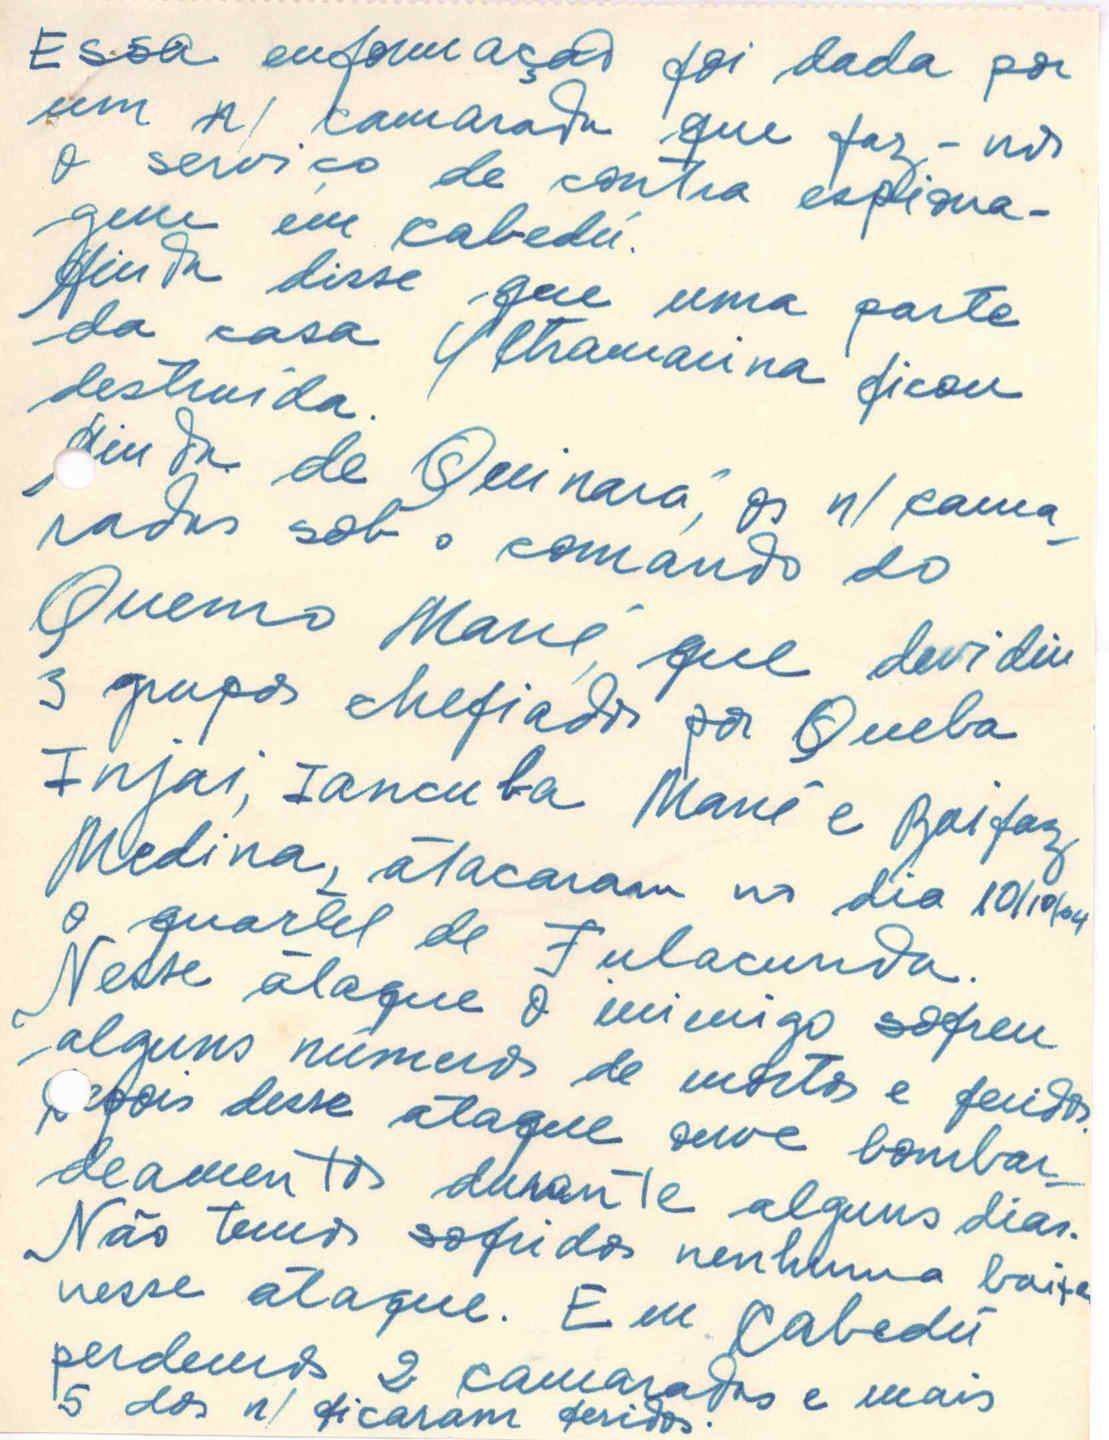 Essa enformação foi dada por
um n/ camarada que faz-nos
o serviço de contra espiona-
gem em Cabedú.
Ainda disse que uma parte
da casa Ultramarina ficou
destruída.
Ainda de Quinará, os n/ cama-
radas sob o comando do
Quemo Mané, que devidiu
3 grupos chefiados por Queba
Injai, Iancuba Mané e Boifaz
Medina, atacaram no dia 10/10/64
o quartel de Fulacunda.
Nesse ataque o inimigo sofreu
alguns números de mortos e feridos.
Depois desse ataque ouve bombar-
deamentos durante alguns dias.
Não temos sofridos nenhuma baixa
nesse ataque. Em Cabedú
perdemos 2 camaradas e mais
5 dos n/ ficaram feridos.